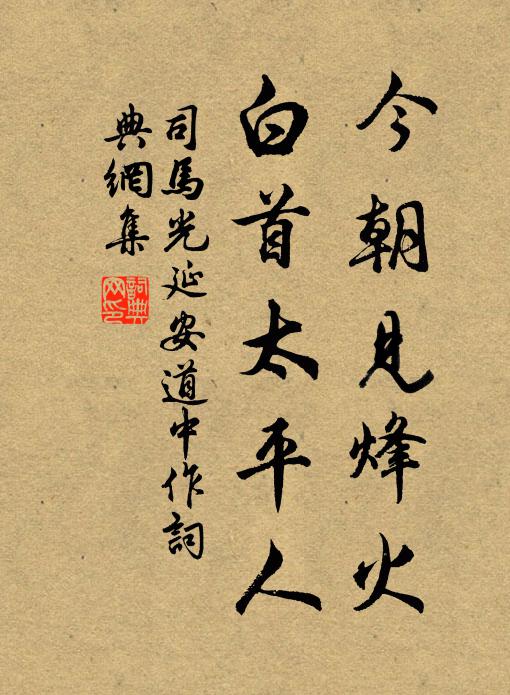 今朝見烽火
白首太平人
司馬光延安道中作詞
典網集
詞典網印